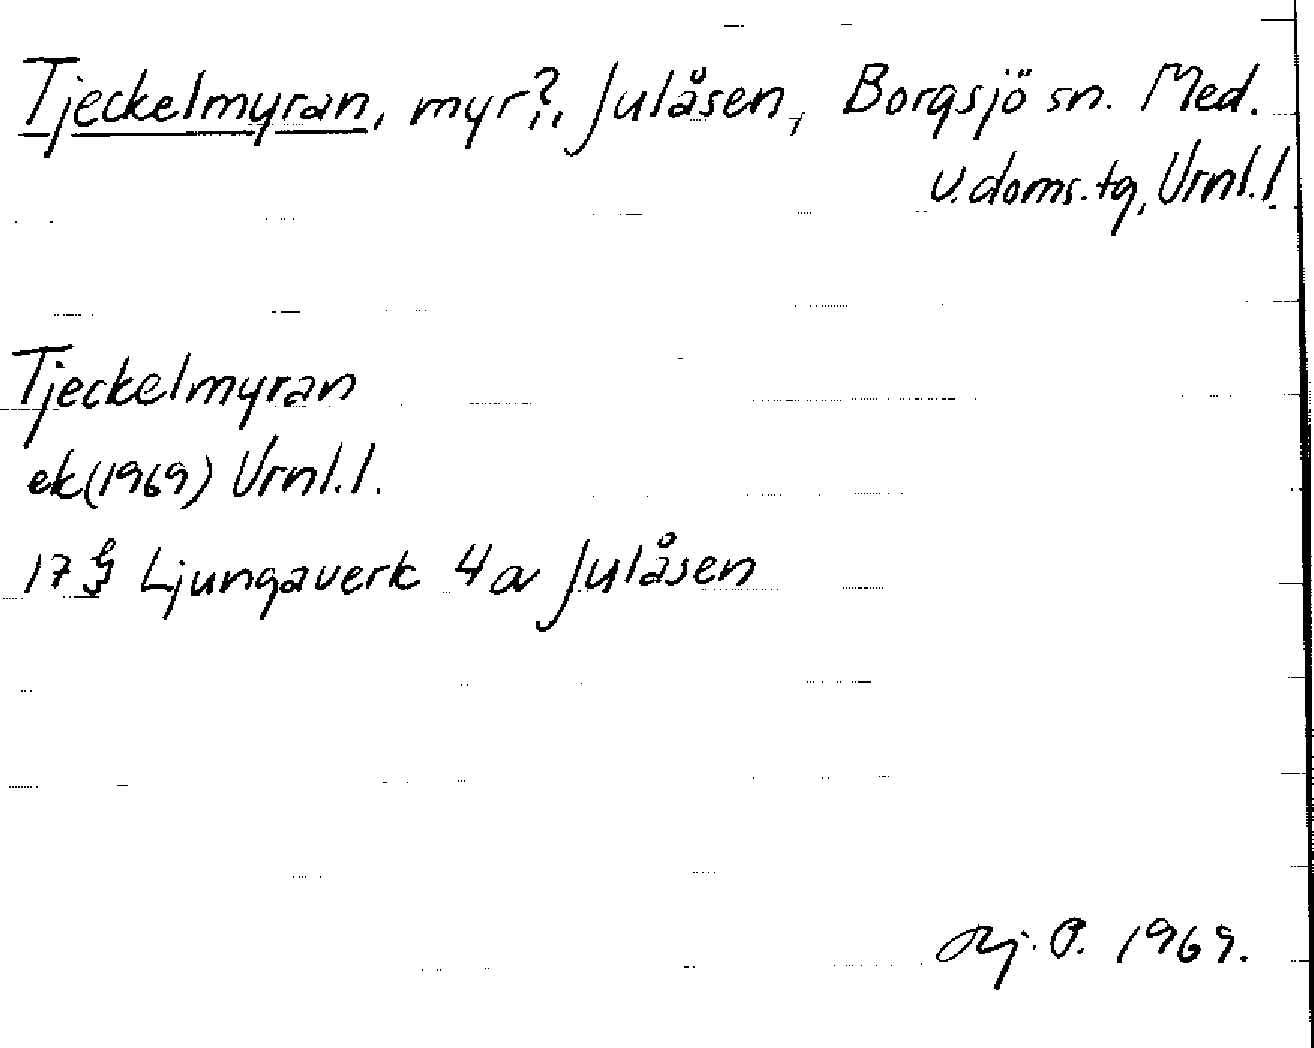 Tjeckelmyran, myr?, Julåsen, Borgsjö sn. Med.
V. doms. tg, Urnl. l.
Tjeckelmyran
ek (1969) Urnl. l.
17 G Ljungaverk 4a Julåsen
P. 1969.